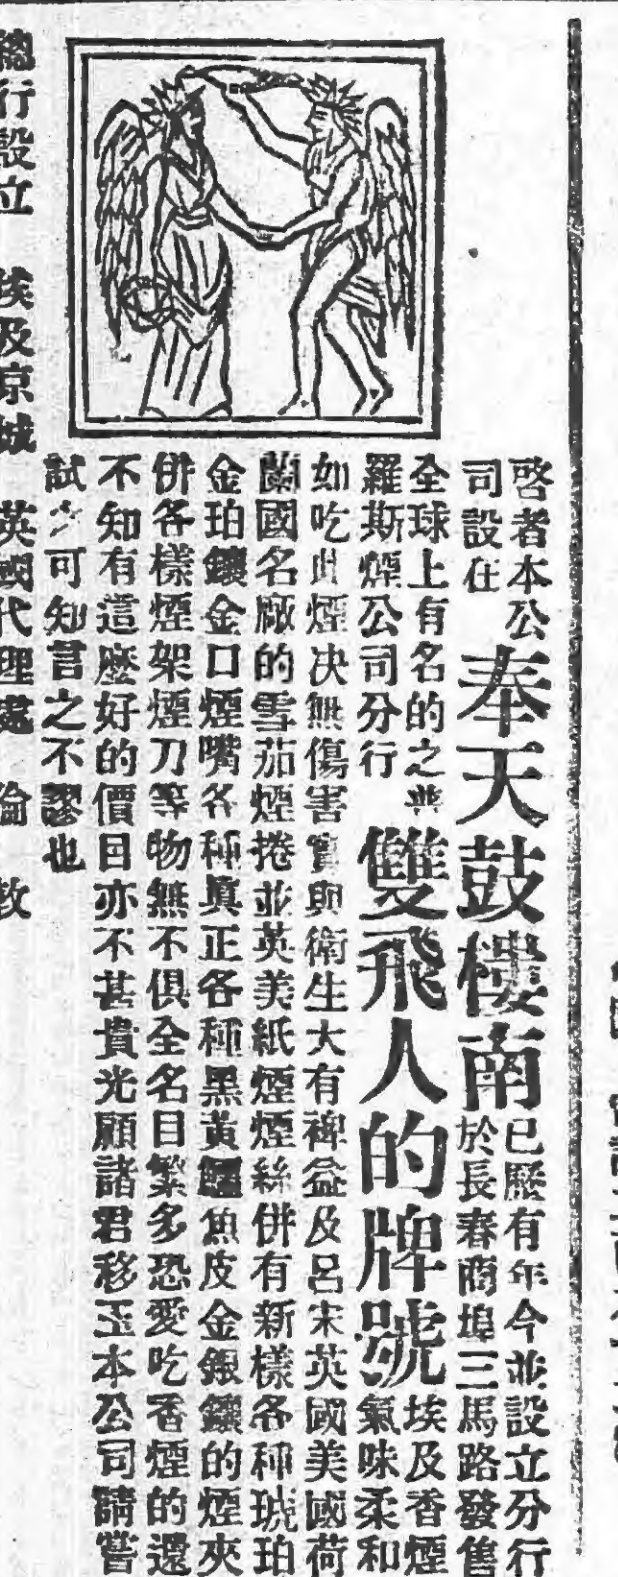 啓者本公司設在
奉天鼓樓南
已歷有年今並設立分行
於長春商埠三馬路發售
全球上有名的之
羅斯煙公司分行
雙飛人的牌號
埃及香煙
氣味柔和
如吃此煙决無傷害實與衛生大有裨益及呂宋英國美國荷
蘭國名廠的雪茄煙捲並英美紙煙煙絲併有新樣各种琥珀
金珀鑲金口煙嘴各种真正各種黑黃鱷魚皮金銀鑲的煙夾
併各樣煙架煙刀等物無不俱全名目繁多恐愛吃香煙的還
不知有這麽好的價目亦不甚貴光顧諸君移玉本公司請嘗
試之可知言之不謬也
總行設立 埃及京城 英國代理處 倫敦